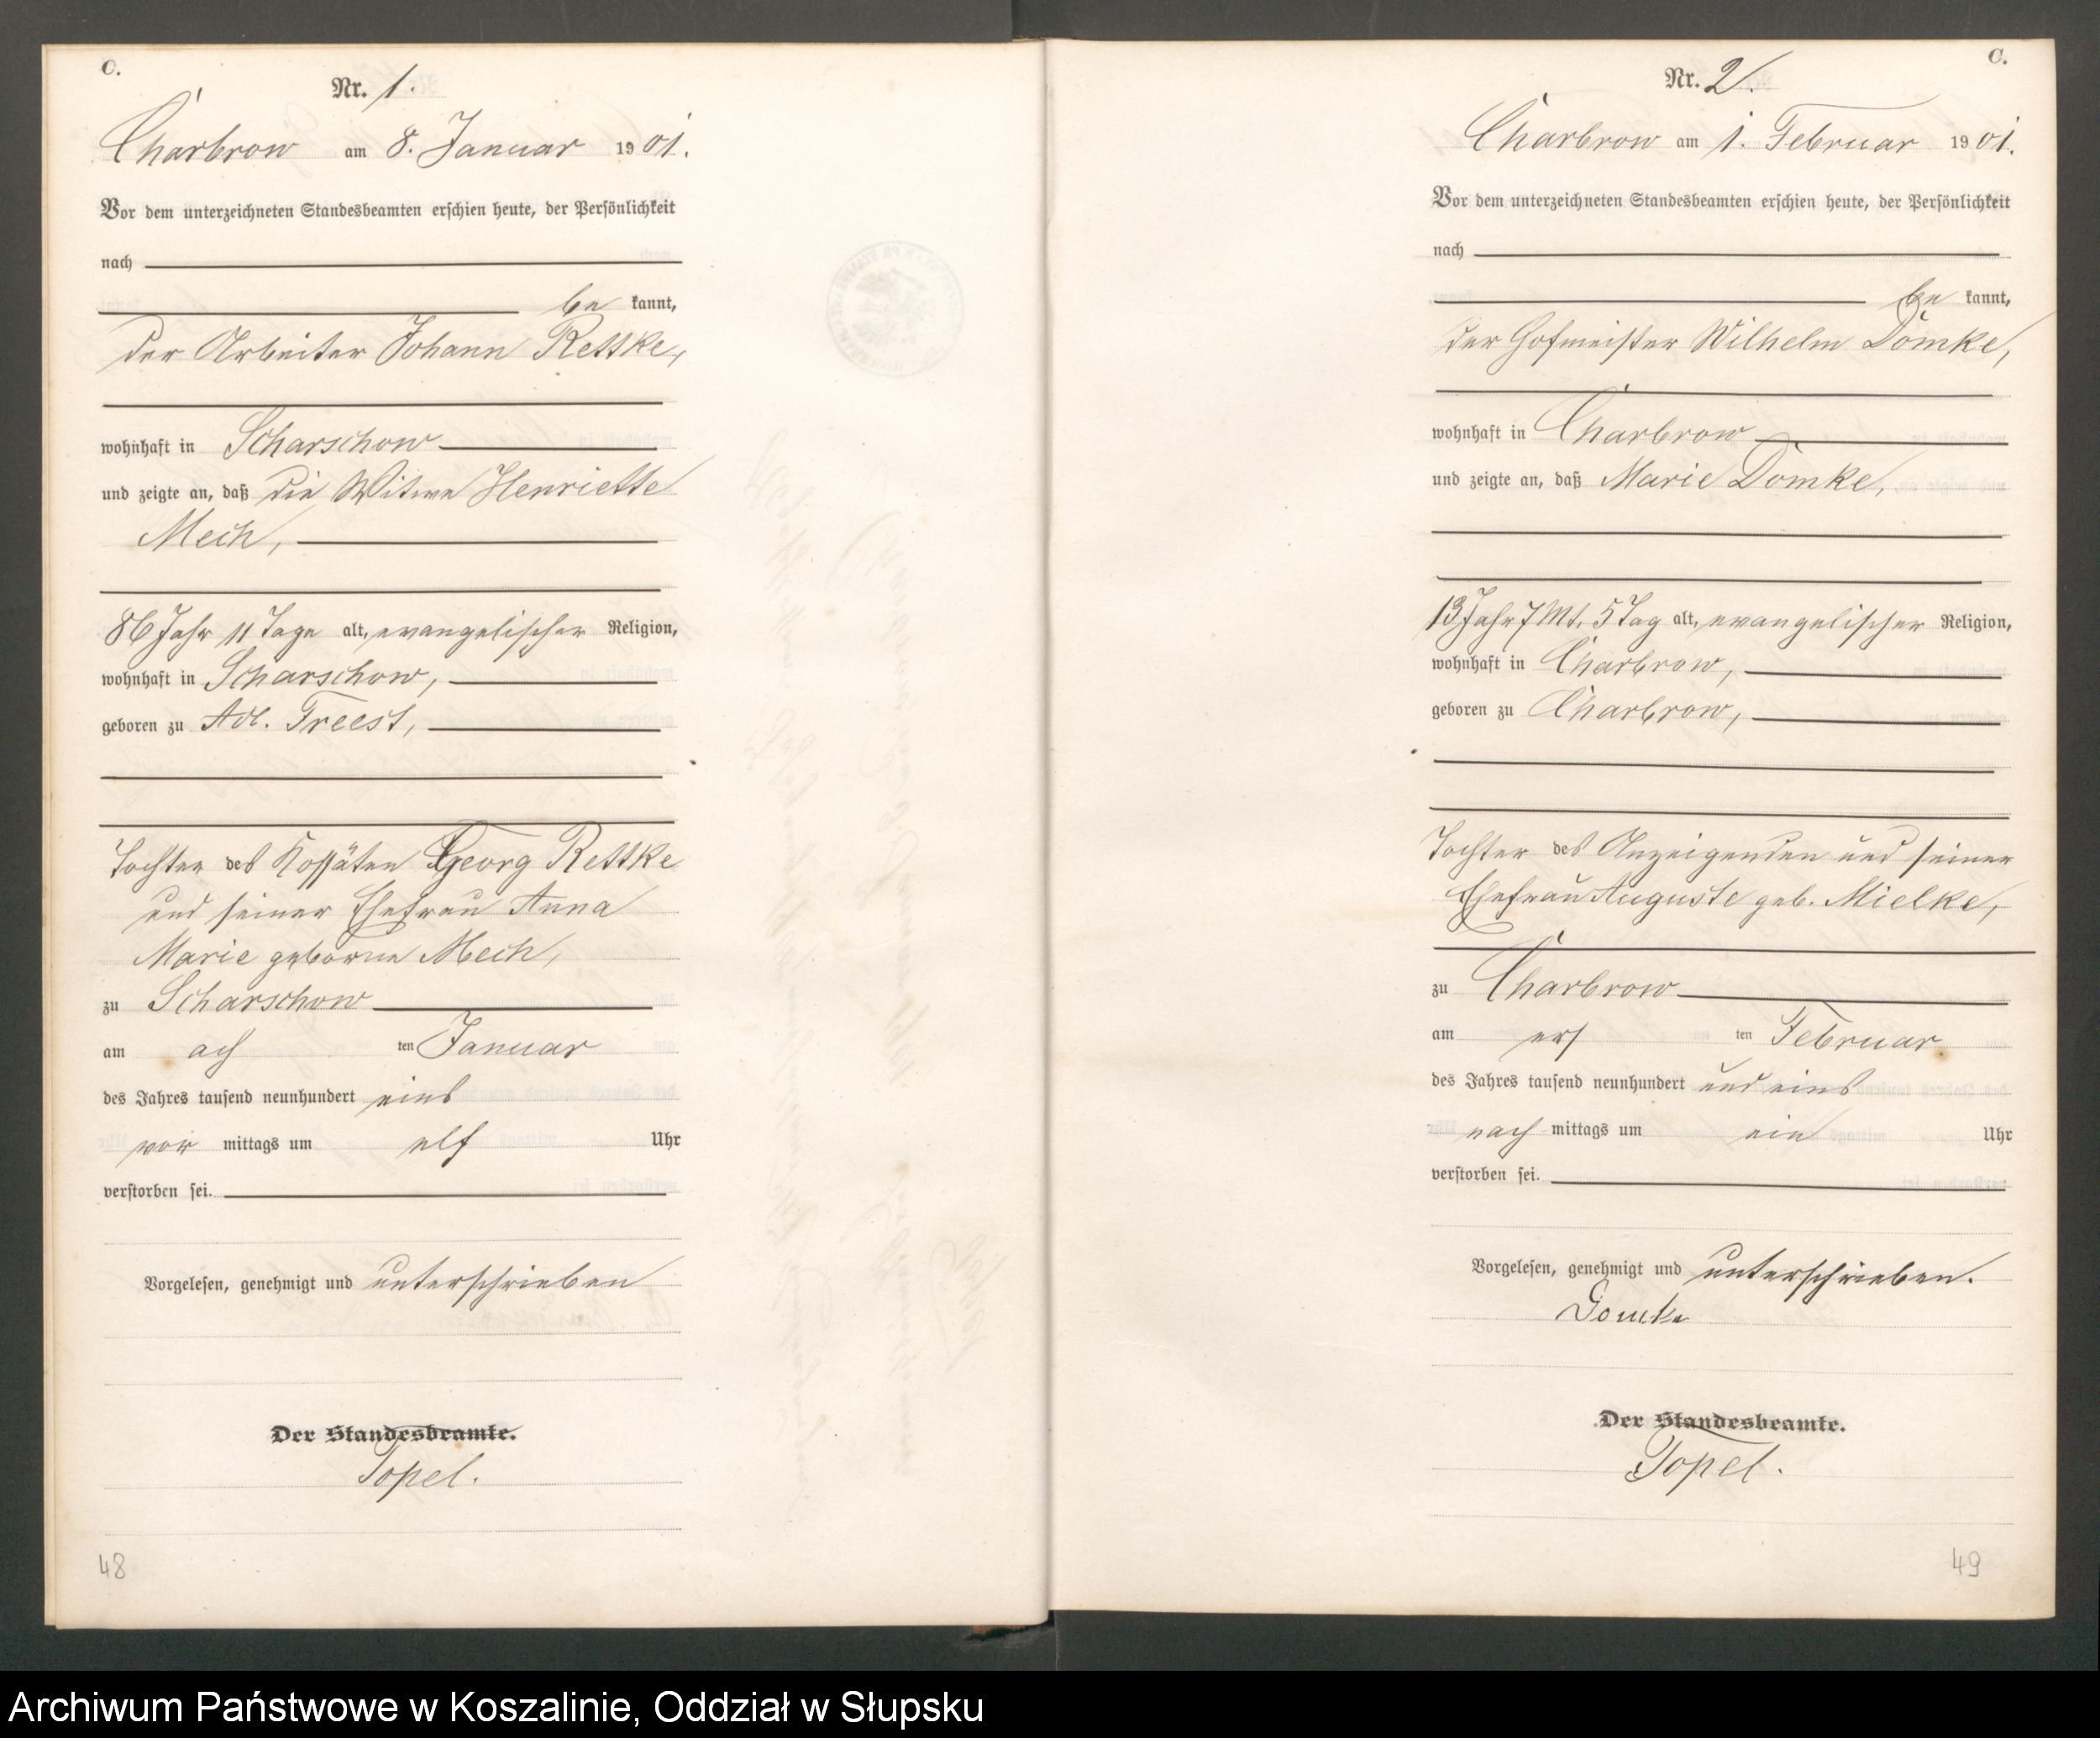 C.
Nr. 1.
Charbrow am 8. Januar 1901.
Vor dem unterzeichneten Standesbeamten erschien heute, der Persönlichkeit
nach
be kannt,
der Arbeiter Johann Rettke,
wohnhaft in Scharschow
und zeigte an, daß die Witwe Henriette
Mech,
86 Jahr 11 Tage alt, evangelischer Religion,
wohnhaft in Scharschow,
geboren zu Adl. Freest,
Tochter des Kossäten Georg Rettke
und seiner Ehefrau Anna
Marie geborne Mech,
zu Scharschow
am ach ten Januar
des Jahres tausend neunhundert eins
vor mittags um elf Uhr
verstorben sei.
Vorgelesen, genehmigt und unterschrieben
Der Standesbeamte.
Topel.
48
C.
Nr. 2.
Charbrow am 1. Februar 1901.
Vor dem unterzeichneten Standesbeamten erschien heute, der Persönlichkeit
nach
be kannt,
der Hofmeister Wilhelm Domke,
wohnhaft in Charbrow
und zeigte an, daß Marie Domke,
13 Jahr 7 Mt. 5 Tag alt, evangelischer Religion,
wohnhaft in Charbrow,
geboren zu Charbrow,
Tochter des Anzeigenden und seiner
Ehefrau Auguste geb. Mielke,
zu Charbrow
am ers ten Februar
des Jahres tausend neunhundert und eins
nach mittags um ein Uhr
verstorben sei.
Vorgelesen, genehmigt und unterschrieben.
Domke
Der Standesbeamte.
Topel.
49
Archiwum Państwowe w Koszalinie, Oddział w Słupsku